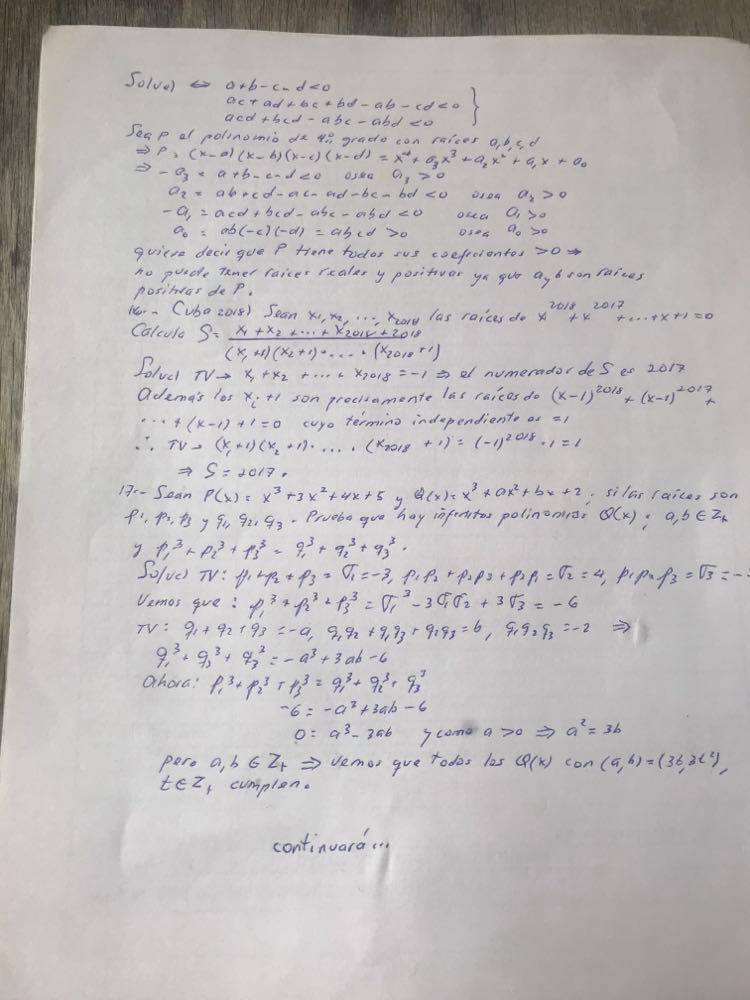 Soluc) ⇔ a+b-c-d<0
ac+ad+bc+bd-ab-cd<0 }
acd+bcd-abc-abd<0
Sea P el polinomio de 4to grado con raíces a,b,c,d
⇒ P=(x-a)(x-b)(x-c)(x-d)=x⁴+a₃x³+a₂x²+a₁x+a₀
⇒ -a₃ = a+b-c-d<0 osea a₃>0
a₂ = ab+cd-ac-ad-bc-bd<0 osea a₂>0
-a₁ = acd+bcd-abc-abd<0 osea a₁>0
a₀ = ab(-c)(-d)=abcd>0 osea a₀>0
quiere decir que P tiene todos sus coeficientes >0 ⇒
no puede tener raíces reales y positivas ya que a y b son raíces
positivas de P.
16.- Cuba 2018) Sean x₁,x₂,...,x₂₀₁₈ las raíces de x²⁰¹⁸+x²⁰¹⁷+...+x+1=0
Calcula S= (x₁+x₂+...+x₂₀₁₈+2018
(x₁+1)(x₂+1)·...·(x₂₀₁₈+1)
Soluc) TV→ x₁+x₂+...+x₂₀₁₈=-1 ⇒ el numerador de S es 2017
Además los xᵢ+1 son precisamente las raíces de (x-1)²⁰¹⁸+(x-1)²⁰¹⁷+
...+(x-1)+1=0 cuyo término independiente es =1
∴ TV→ (x₁+1)(x₂+1)·...·(x₂₀₁₈+1)=(-1)²⁰¹⁸·1=1
⇒ S=2017.
17.- Sean P(x)=x³+3x²+4x+5 y Q(x)=x³+ax²+bx+2. si las raíces son
p₁,p₂,p₃ y q₁,q₂,q₃. Prueba que hay infinitos polinomios Q(x); a,b∈Z₊
y p₁³+p₂³+p₃³=q₁³+q₂³+q₃³.
Soluc) TV: p₁+p₂+p₃=σ₁=-3, p₁p₂+p₂p₃+p₃p₁=σ₂=4, p₁p₂p₃=σ₃=-
Vemos que: p₁³+p₂³+p₃³=σ₁³-3σ₁σ₂+3σ₃=-6
TV: q₁+q₂+q₃=-a, q₁q₂+q₁q₃+q₂q₃=b, q₁q₂q₃=-2 ⇒
q₁³+q₂³+q₃³=-a³+3ab-6
Ahora: p₁³+p₂³+p₃³=q₁³+q₂³+q₃³
-6=-a³+3ab-6
0=a³-3ab y como a>0 ⇒ a²=3b
pero a,b∈Z₊ ⇒ vemos que todos los Q(x) con (a,b)=(3t,3t²),
t∈Z₊ cumplen.
continuará...